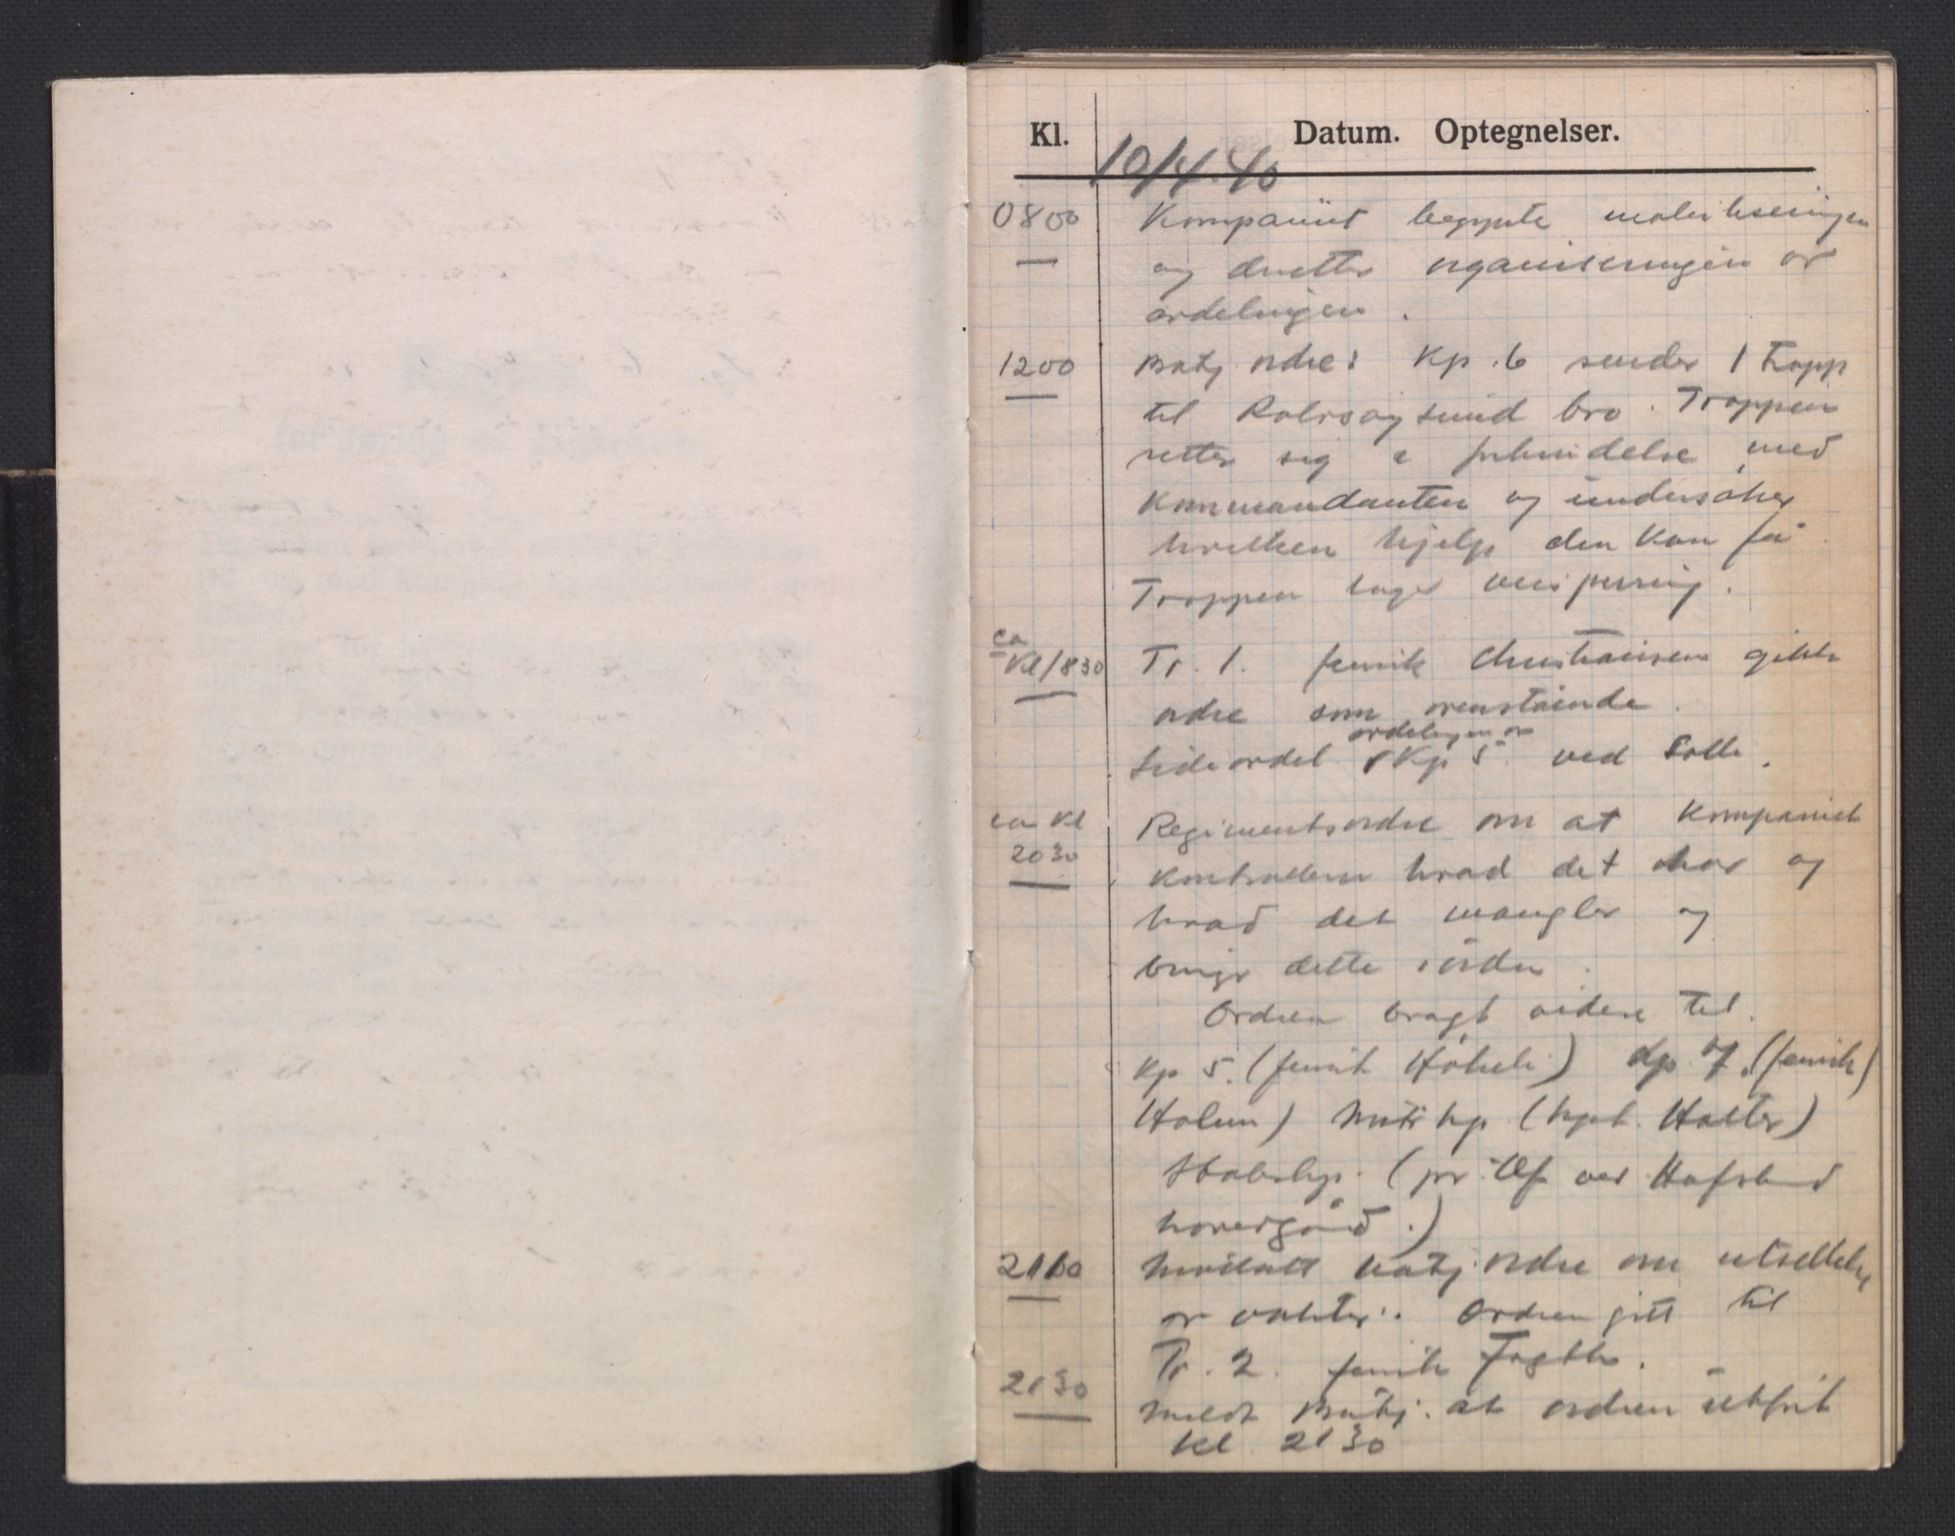 Kl. Datum. Optegnelser.
10/4.40
0800 Kompaniet begynte mobiliseringen
og deretter organiseringen av
avdelingen.
1200 Batj ordre: Kp. 6 sender 1 tropp
til Rolvsøysund bro. Troppen
setter sig i forbindelse med
Kommandanten og undersøker
hvilken hjelp den kan få
Troppen lager veisperring.
ca
Kl 1830 Tr. 1. fenrik Christiansen gikk
ordre som ovenstående.
avdelingen av
Sideavdel Kp 5 ved Solli.
ca Kl Regimentsordre om at Kompaniet
2030 kontrollerer hvad det har og
hvad det mangler og
bringe dette i orden.
Ordren bragt videre til.
Kp 5. (fenrik) Kp. 7. (fenrik)
Holum) Mitr kp (kpt. Holter)
Stabskp. (pr. ved Hafslund
hovedgård.)
2100 Mottatt batj. ordre om utsettelse
av vakter. Ordren gitt til
Tr. 2. fenrik
2130 meldt Batj. at ordren utført
kl 2130